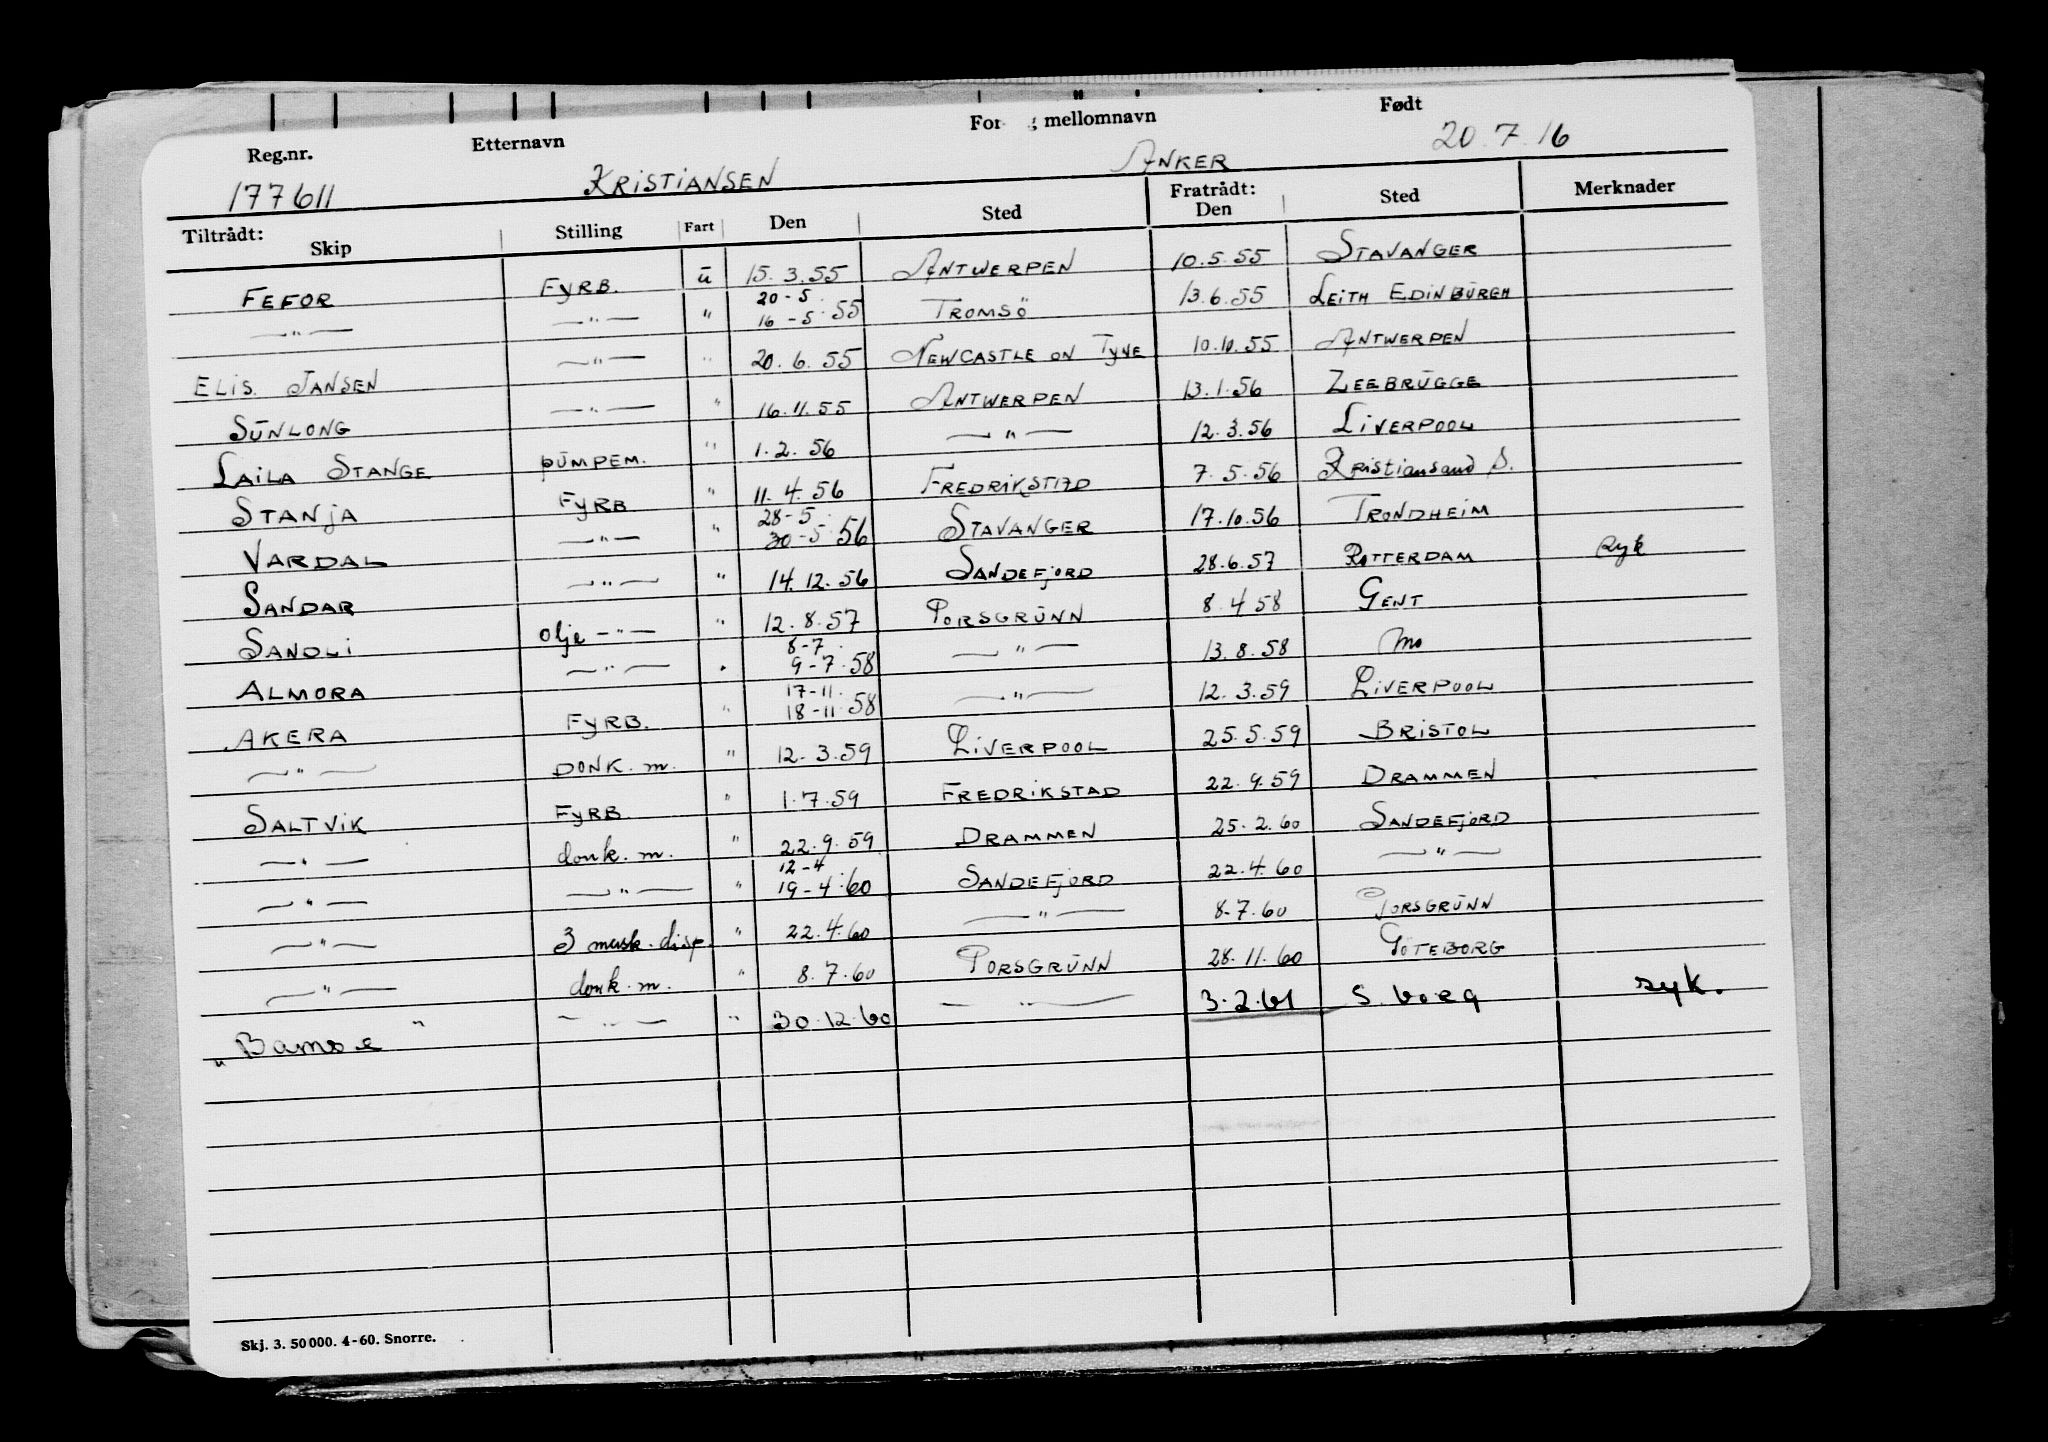 Reg.nr. Etternavn For- g mellomnavn Født
177611 KRISTIANSEN ANKER 20.7.16
Tiltrådt: Skip Stilling Fart Den Sted Fratrådt: Den Sted Merknader
FEFOR FYRB. ū 15.3.55 ANTWERPEN 10.5.55 STAVANGER
—"— —"— " 20-5. 16-5.55 TROMSÖ 13.6.55 LEITH EDINBŪRGH
ELIS. JANSEN —"— " 20.6.55 NEWCASTLE ON TYNE 10.10.55 ANTWERPEN
SŪNLONG —"— " 16.11.55 ANTWERPEN 13.1.56 ZEEBRŪGGE
LAILA STANGE PŪMPEM. " 1.2.56 —"— 12.3.56 LIVERPOOL
STANJA FYRB " 11.4.56 FREDRIKSTAD 7.5.56 Kristiansand S.
VARDAL —"— " 28-5. 30-5.56 STAVANGER 17.10.56 TRONDHEIM
SANDAR —"— " 14.12.56 SANDEFJORD 28.6.57 ROTTERDAM syk
SANDLI Olje —"— " 12.8.57 PORSGRŪNN 8.4.58 GENT
ALMORA —"— " 8-7. 9-7.58 —"— 13.8.58 Mo
AKERA FYRB. " 17-11. 18-11.58 —"— 12.3.59 LIVERPOOL
—"— DONK. m. " 12.3.59 LIVERPOOL 25.5.59 BRISTOL
SALTVIK FYRB. " 1.7.59 FREDRIKSTAD 22.9.59 DRAMMEN
—"— donk. m. " 22.9.59 DRAMMEN 25.2.60 SANDEFJORD
—"— —"— " 12-4 19-4.60 SANDEFJORD 22.4.60 —"—
—"— 3 mask. disp. " 22.4.60 —"— 8.7.60 PORSGRŪNN
—"— donk. m. " 8.7.60 PORSGRŪNN 28.11.60 GÖTEBORG
"Bamse" —"— " 30.12.60 —"— 3.2.61 S.borg syk.
Skj. 3. 50 000. 4-60. Snorre.